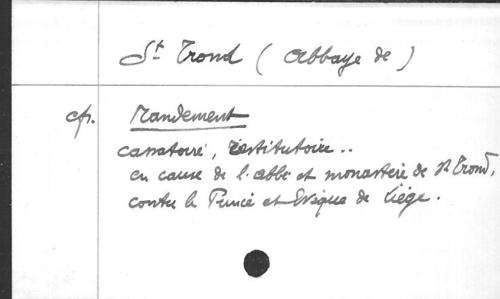 St Trond ( Abbaye de )
cfr. Mandement
cassatoire, restitutoire ..
en cause de l'abbé et monastère de St Trond,
contre le Prince et Evêque de Liége.